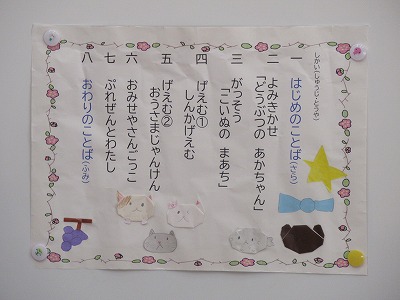 しかい(しゅうじ・とうや)
一 はじめのことば(さら)
二 よみきかせ
「どうぶつの あかちゃん」
三 がっそう
「こいぬの まあち」
四 げえむ①
しんかげえむ
五 げえむ②
おうさまじゃんけん
六 おみせやさんごっこ
七 ぷれぜんとわたし
八 おわりのことば(ふみ)